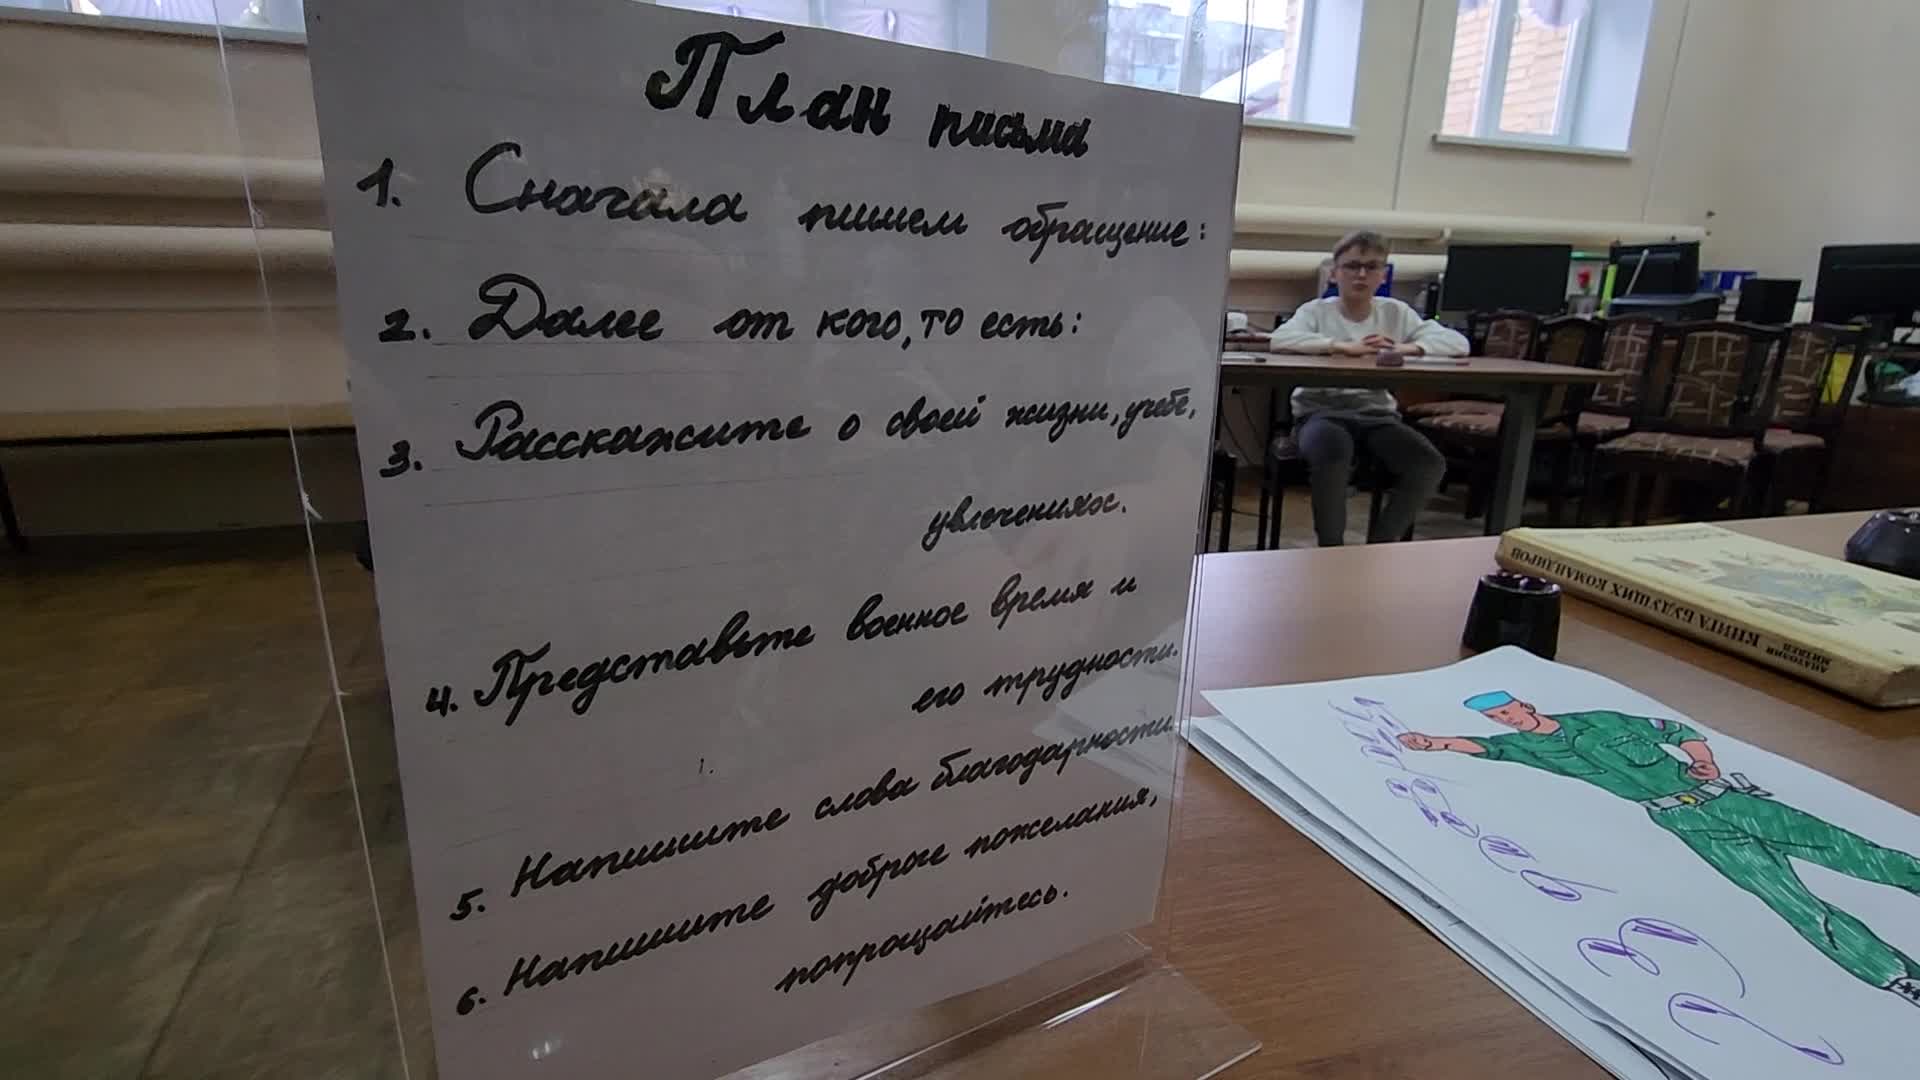 План письма
1. Сначала пишем обращение:
2. Далее от кого, то есть:
3. Расскажите о своей жизни, учебе,
увлечениях.
4. Представьте военное время и
его трудности.
5. Напишите слова благодарности.
6. Напишите добрые пожелания,
попрощайтесь.
АНАТОЛИЙ
МИТЯЕВ
КНИГА БУДУЩИХ КОМАНДИРОВ